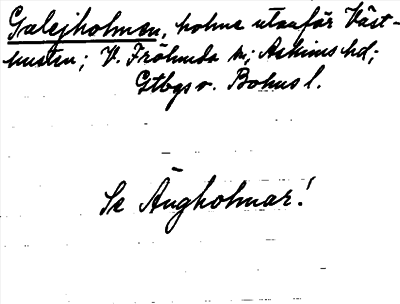 Galejholmen, holme utanför Väst-
kusten; V. Frölunda sn; Askims hd;
Gtbgs o. Bohus l.
Se Ängholmar!